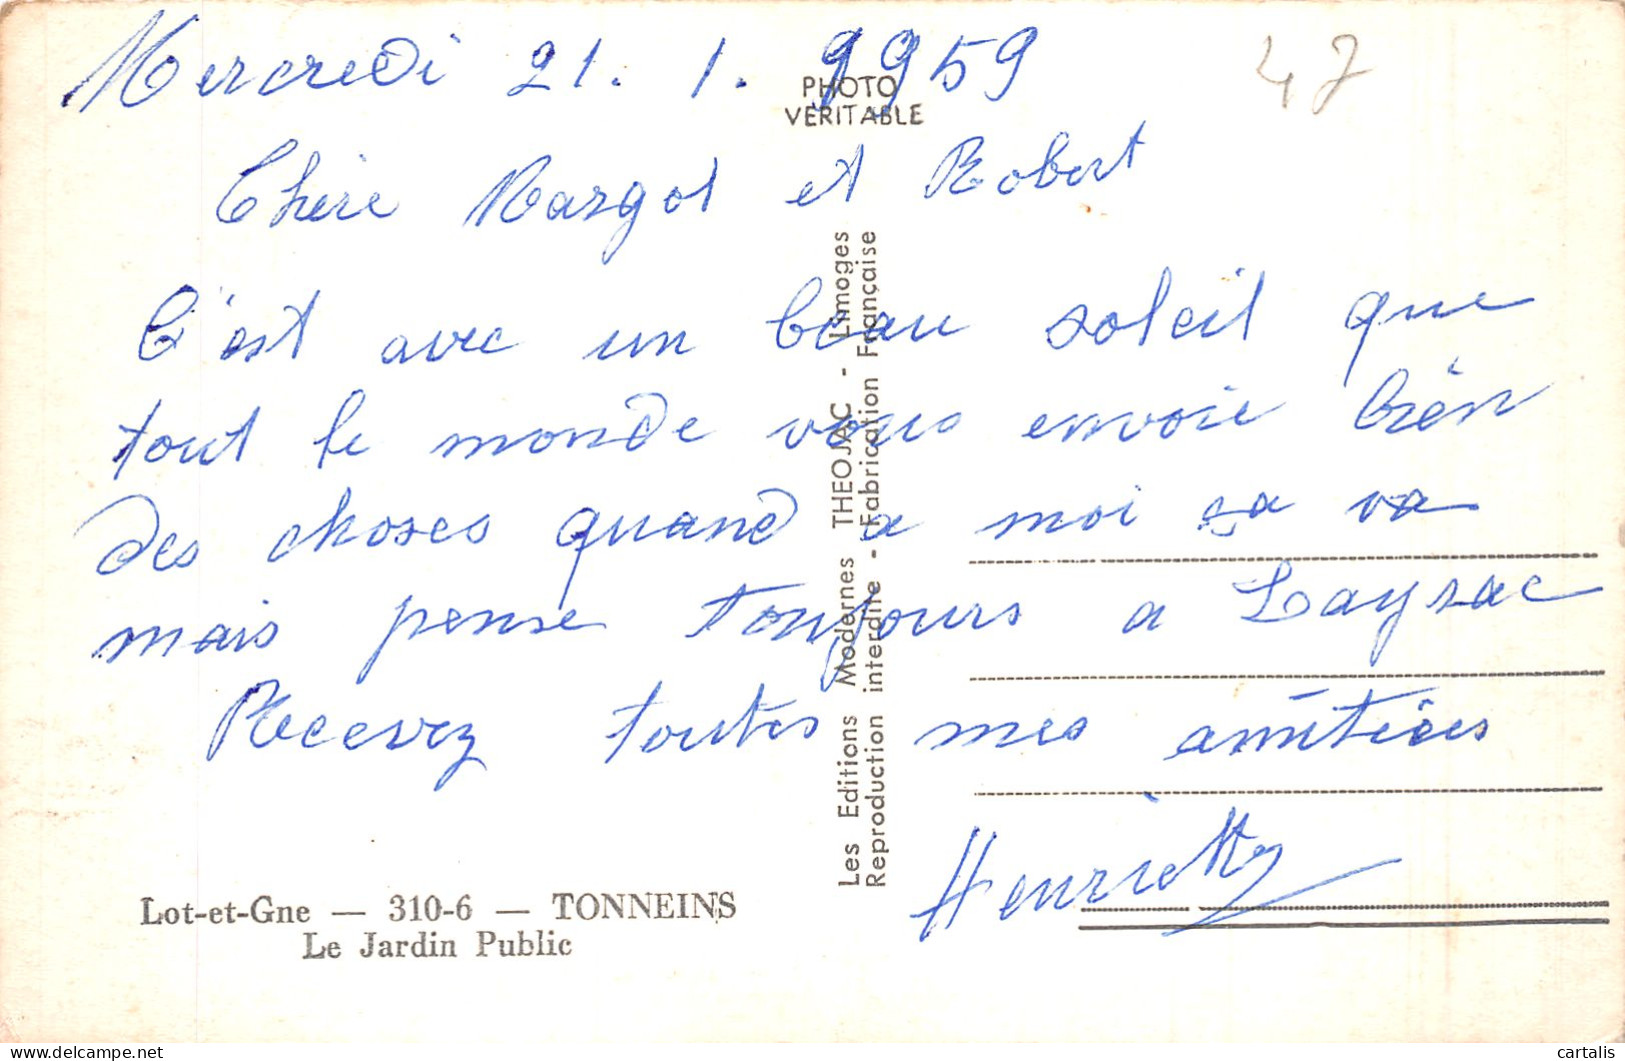 Mercredi 21. 1. 1959
47
PHOTO
VERITABLE
Chère Margot et Robert
C'est avec un beau soleil que
tout le monde vous envoie bien
des choses quand a moi sa va
mais pense toujours a Laysac
Recevez toutes mes amitiées
Henriette
Les Editions Modernes THEOJAC - Limoges
Reproduction interdite - Fabrication Française
Lot-et-Gne — 310-6 — TONNEINS
Le Jardin Public
cartalis